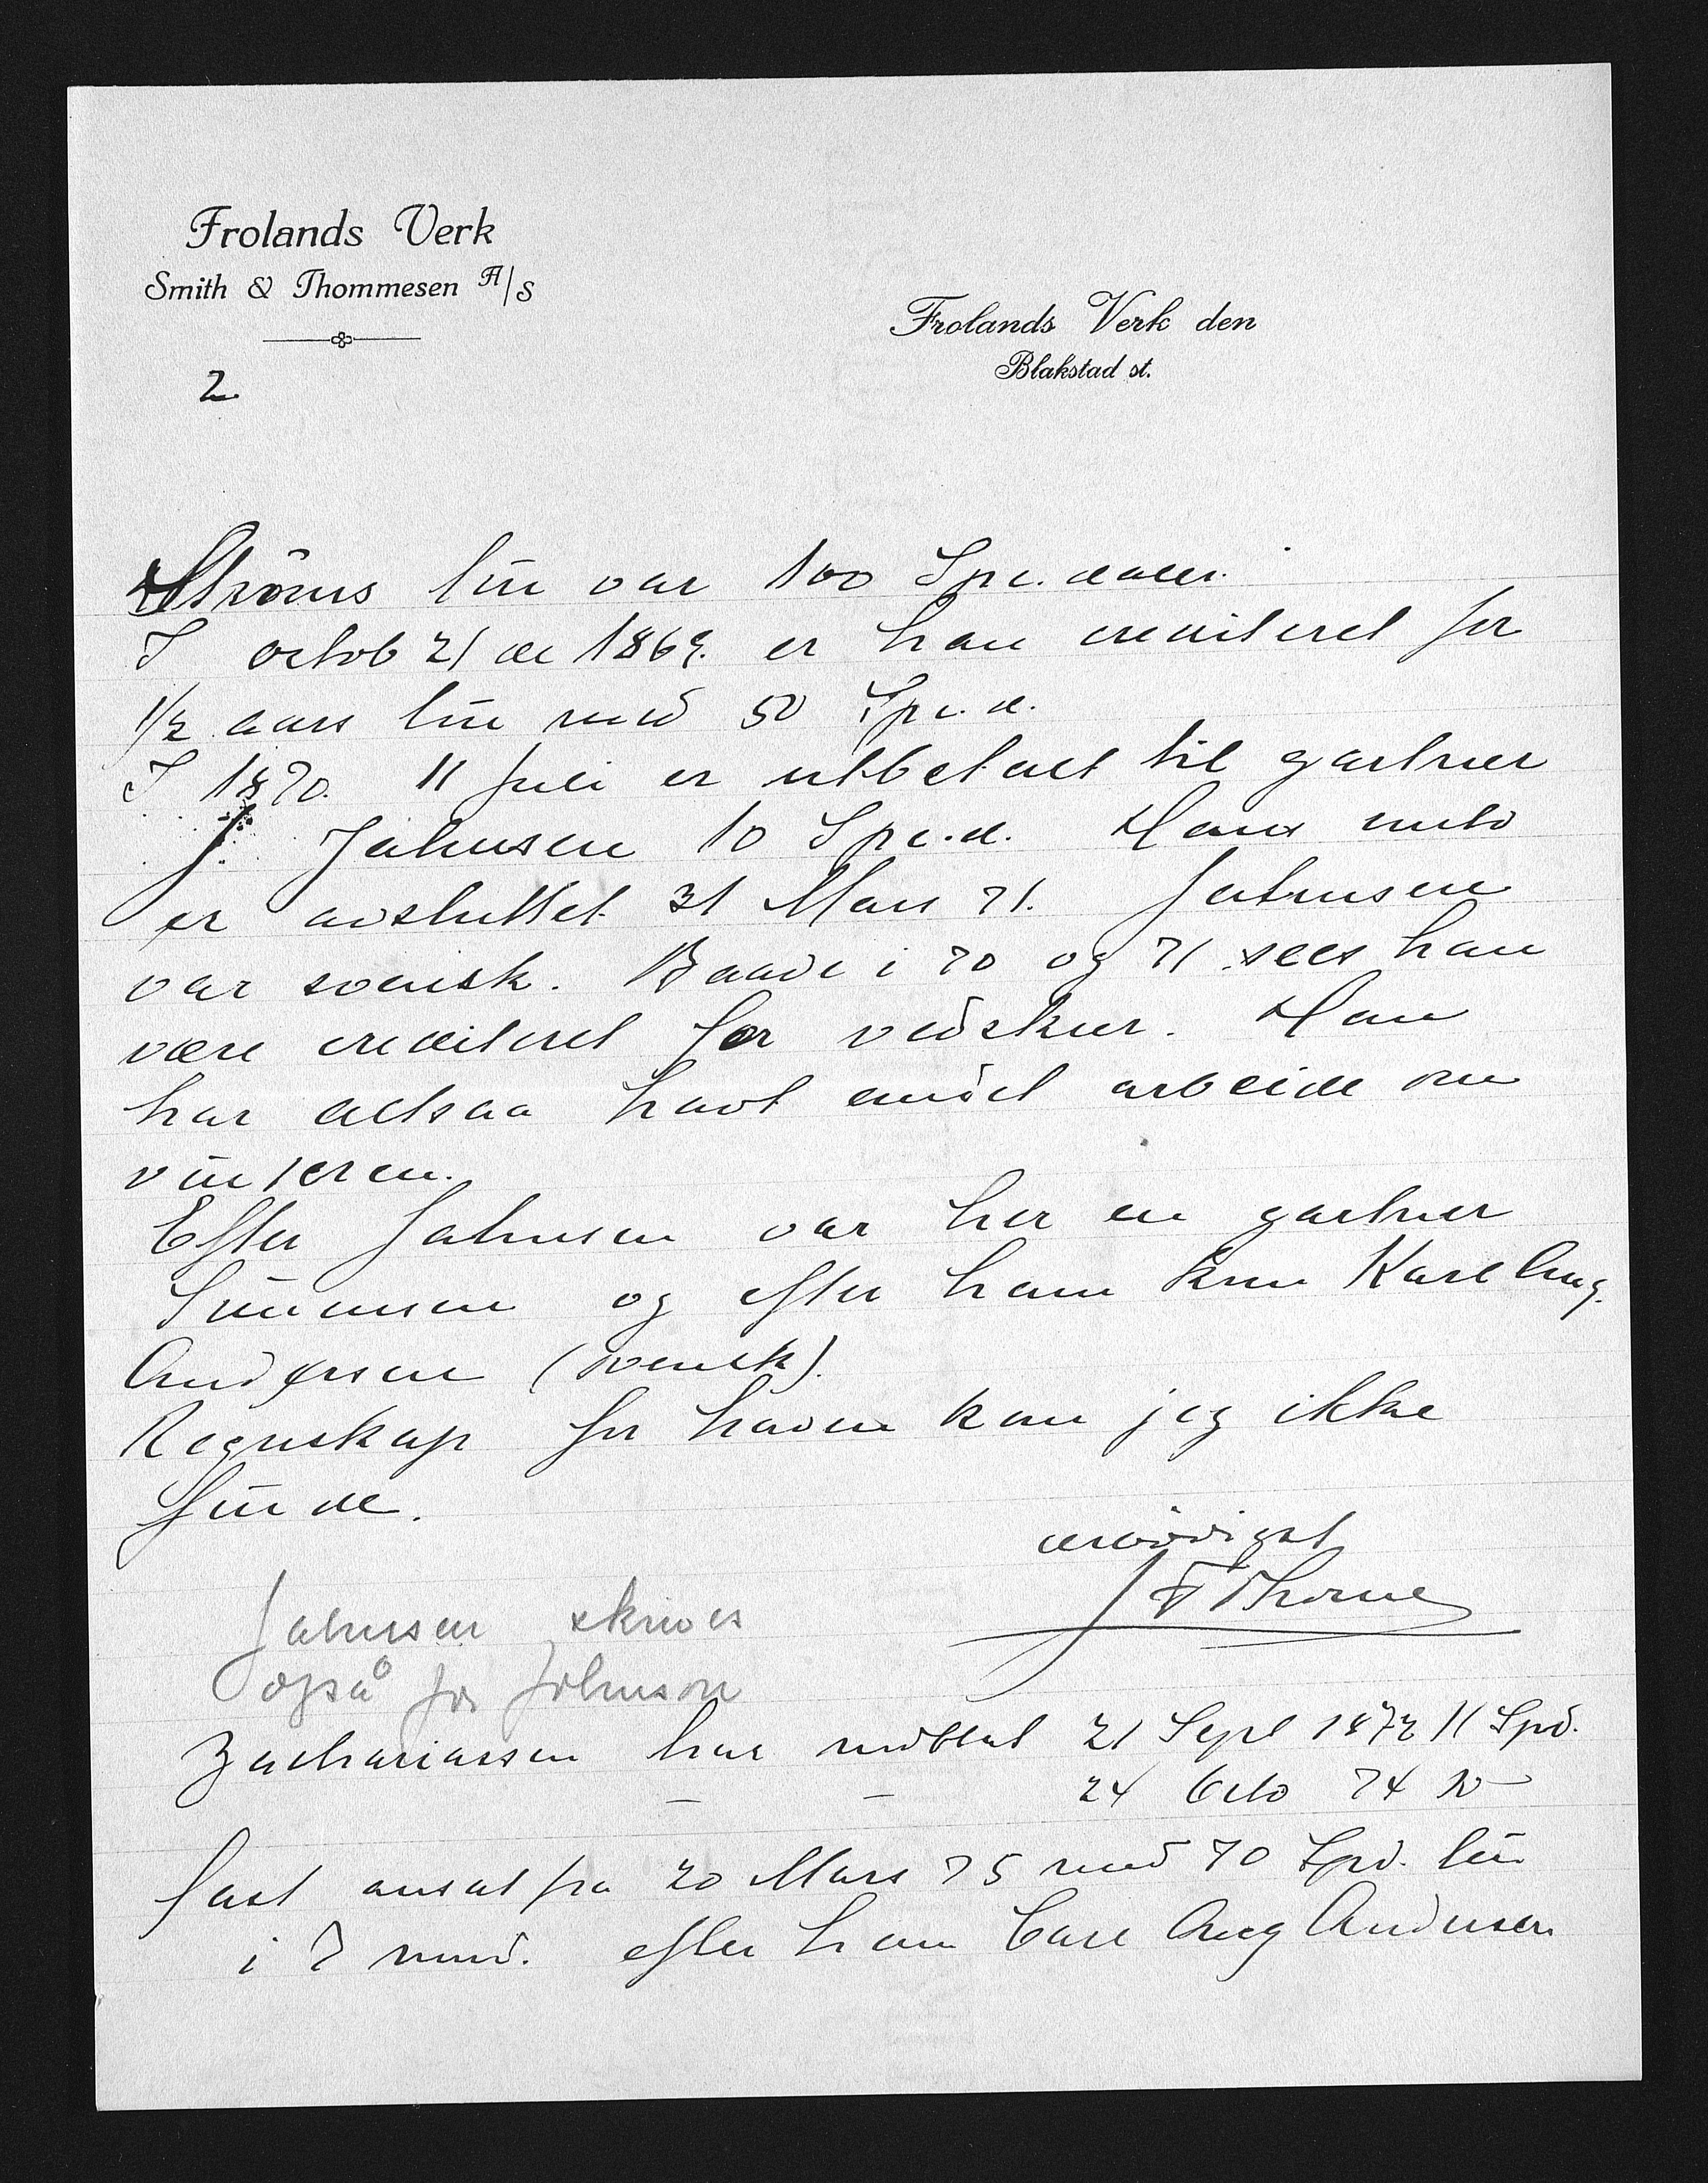 Frolands Verk
Smith & Thommesen A/S
Frolands Verk den
Blakstad st.
2.
Ströms lön var 100 Spe.daler.
I octob 21 de 1869. er han crediteret for
1/2 aars lön med 50 Spe.d.
I 1870. 11 Juli er utbetalt til gartner
J. Jahnsen 10 Spe.d. Hans conto
er avsluttet 31 Mars 71. Jahnsen
var svensk. Baade i 70 og 71 sees han
være crediteret for vedskur. Han
har altsaa havt andet arbeide om
vinteren.
Efter Jahnsen var her en gartner
Simonsen og efter ham kom Karl Aug.
Andersen (svensk).
Regnskap for haven kan jeg ikke
finde.
ærbödigst
J F Thorne
Jahnsen skrives
også for Johnson
Zachariassen har mottat 21 Sept 1872 11 Spd.
— — 24 Octo 74 10 —
fast ansat fra 20 Mars 75 med 70 Spd. lön
i 7 mnd. efter ham Carl Aug Andersen